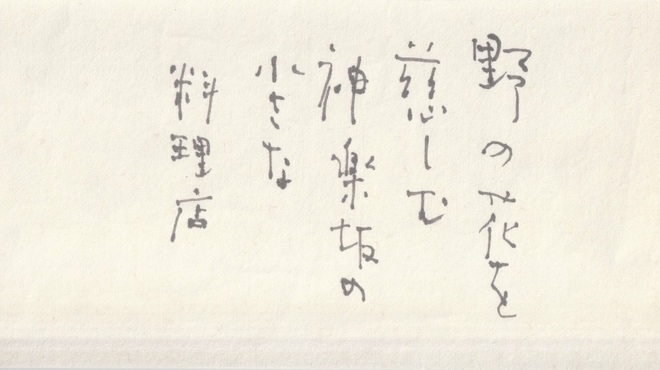 野の花を
慈しむ
神楽坂の
小さな
料理店